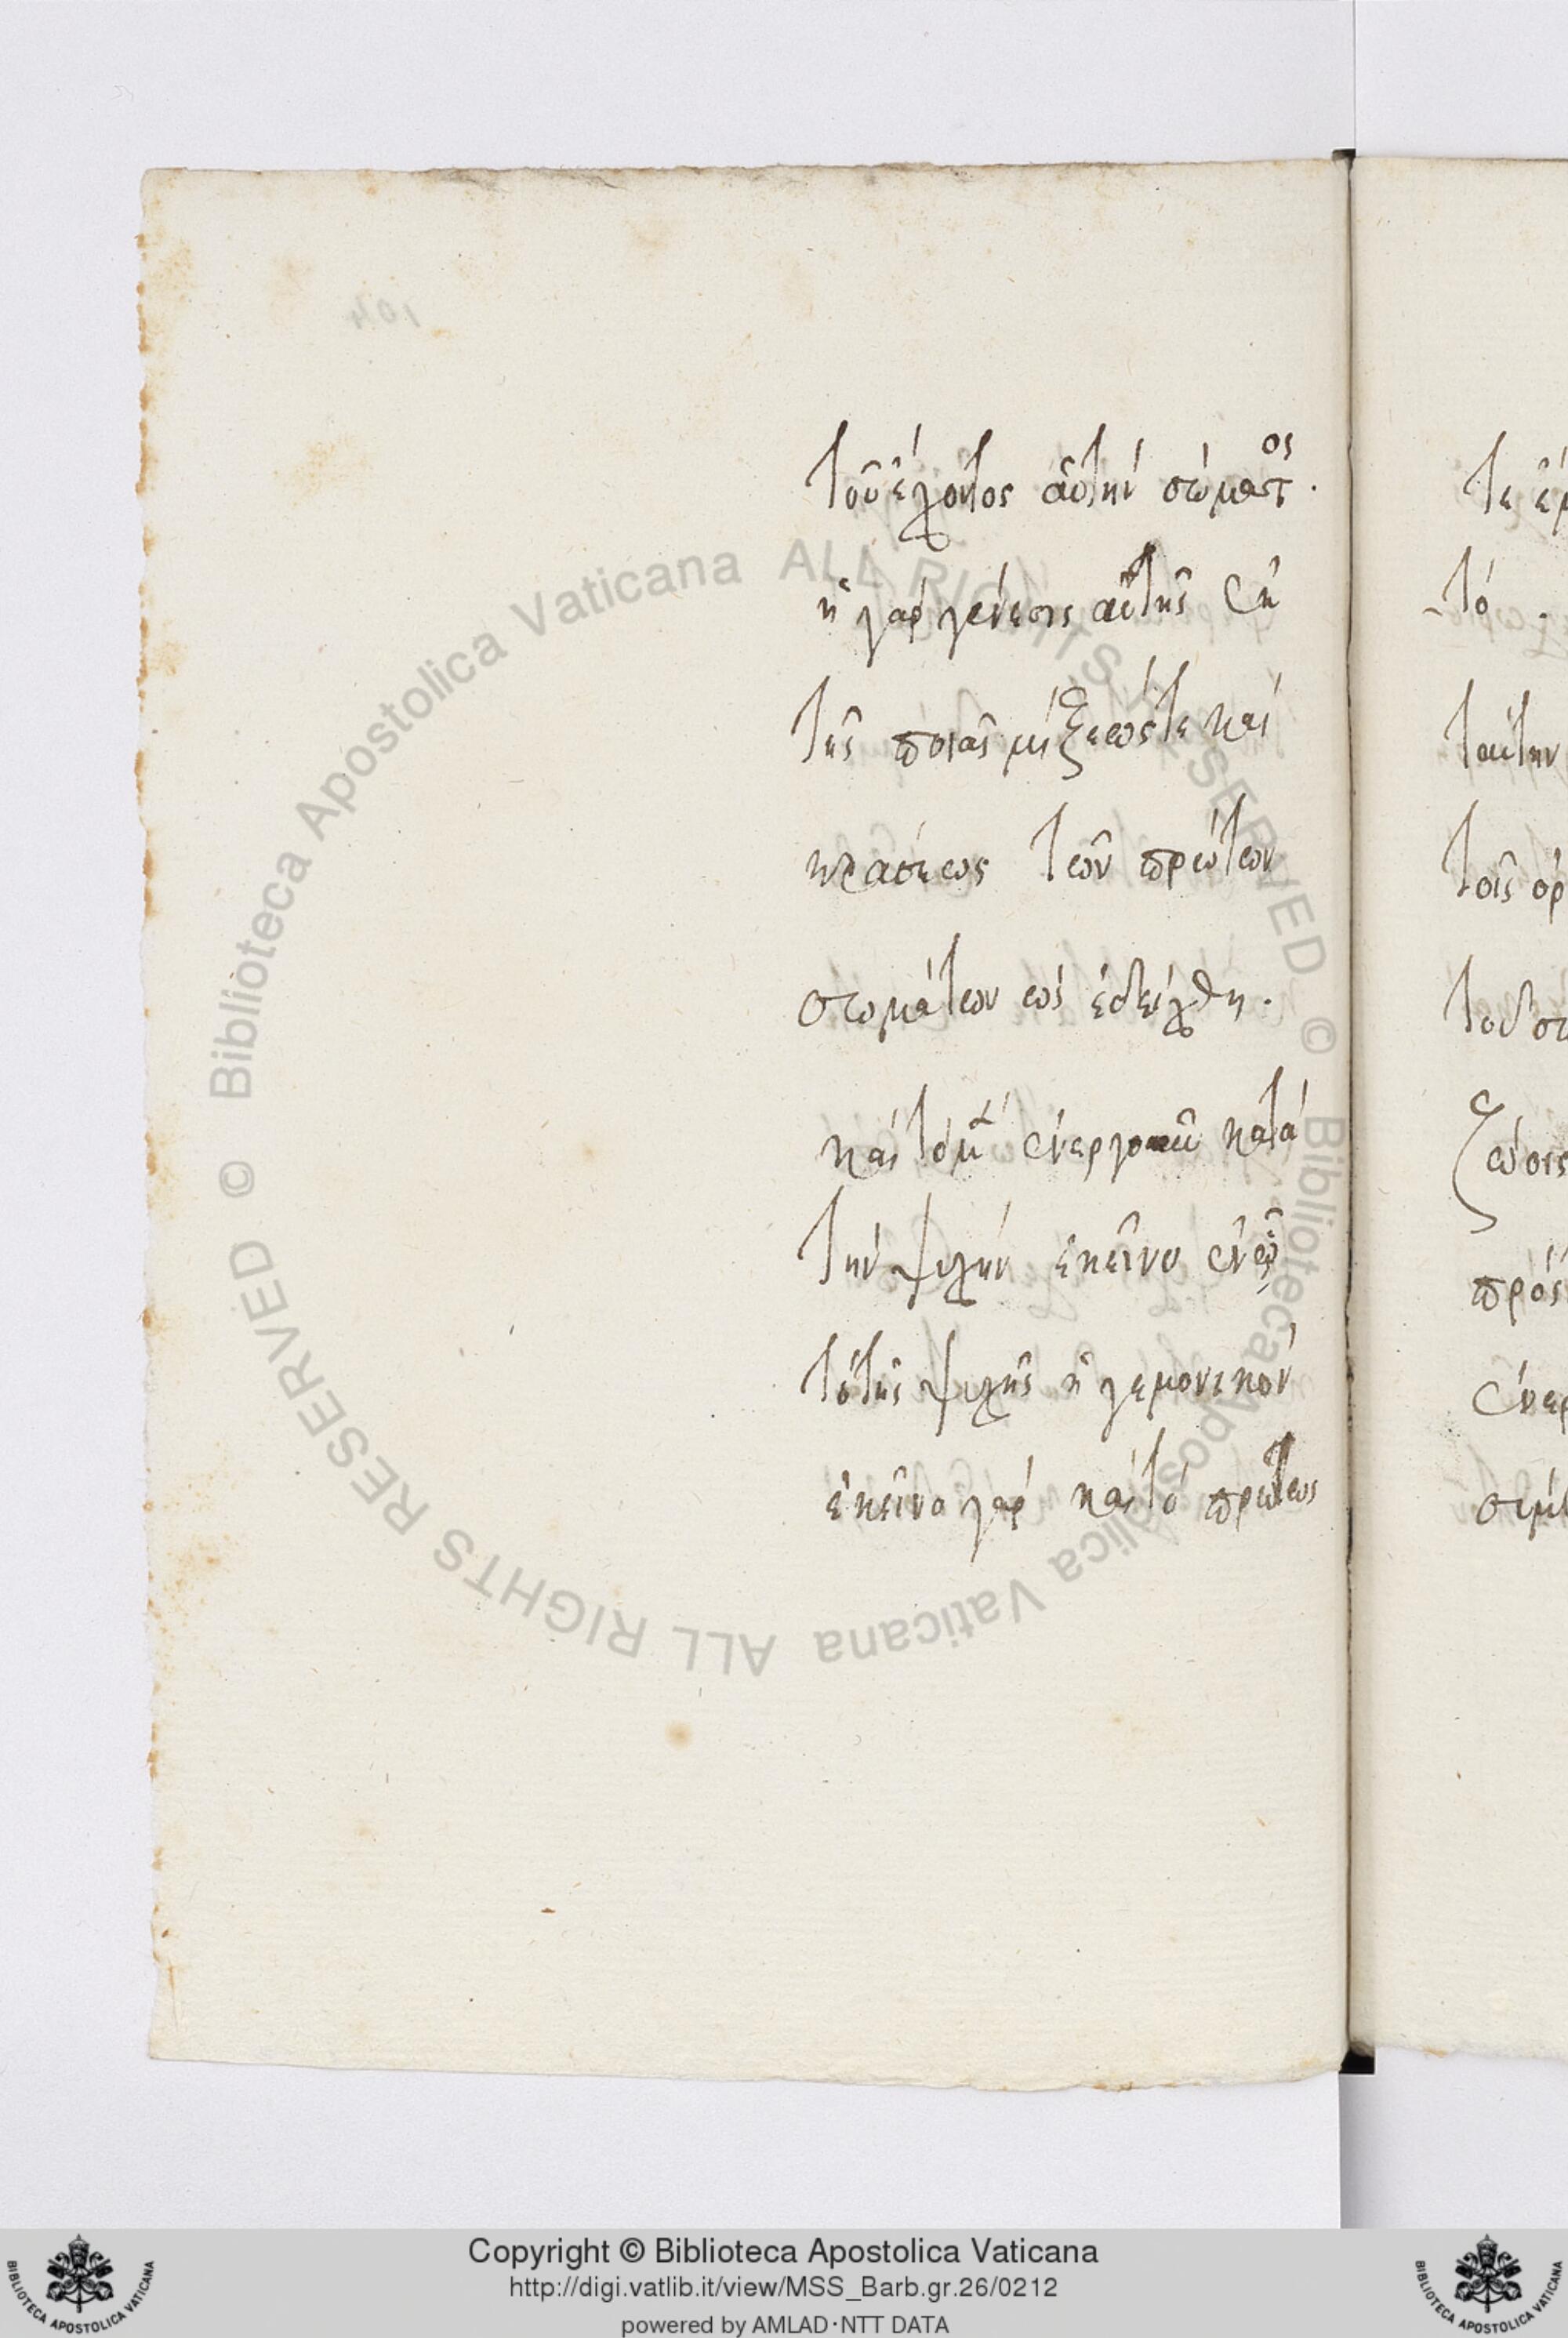 τοῦ ἔχοντος αὐτὴν σώματος.
ἡ γὰρ γένεσις αὐτῆς ἐκ
τῆς ποιᾶς μίξεώς τε καὶ
κράσεως τῶν πρώτων
σωμάτων ὡς ἐδείχθη.
καὶ τὸ μα κατὰ
τὴν ψυχὴν ἐκεῖνο ἐν ᾧ
τὸ τῆς ψυχῆς ἡγεμονικὸν
ἐκεῖνο γὰρ καὶ τὸ πρώτως
τε
τό .
ταύτην
τοῖς
ζώοις
πρὸς
104
© Biblioteca Apostolica Vaticana ALL RIGHTS RESERVED © Biblioteca Apostolica Vaticana ALL RIGHTS RESERVED
Copyright © Biblioteca Apostolica Vaticana
http://digi.vatlib.it/view/MSS_Barb.gr.26/0212
powered by AMLAD·NTT DATA
BIBLIOTECA APOSTOLICA VATICANA
BIBLIOTECA APOSTOLICA VATICANA